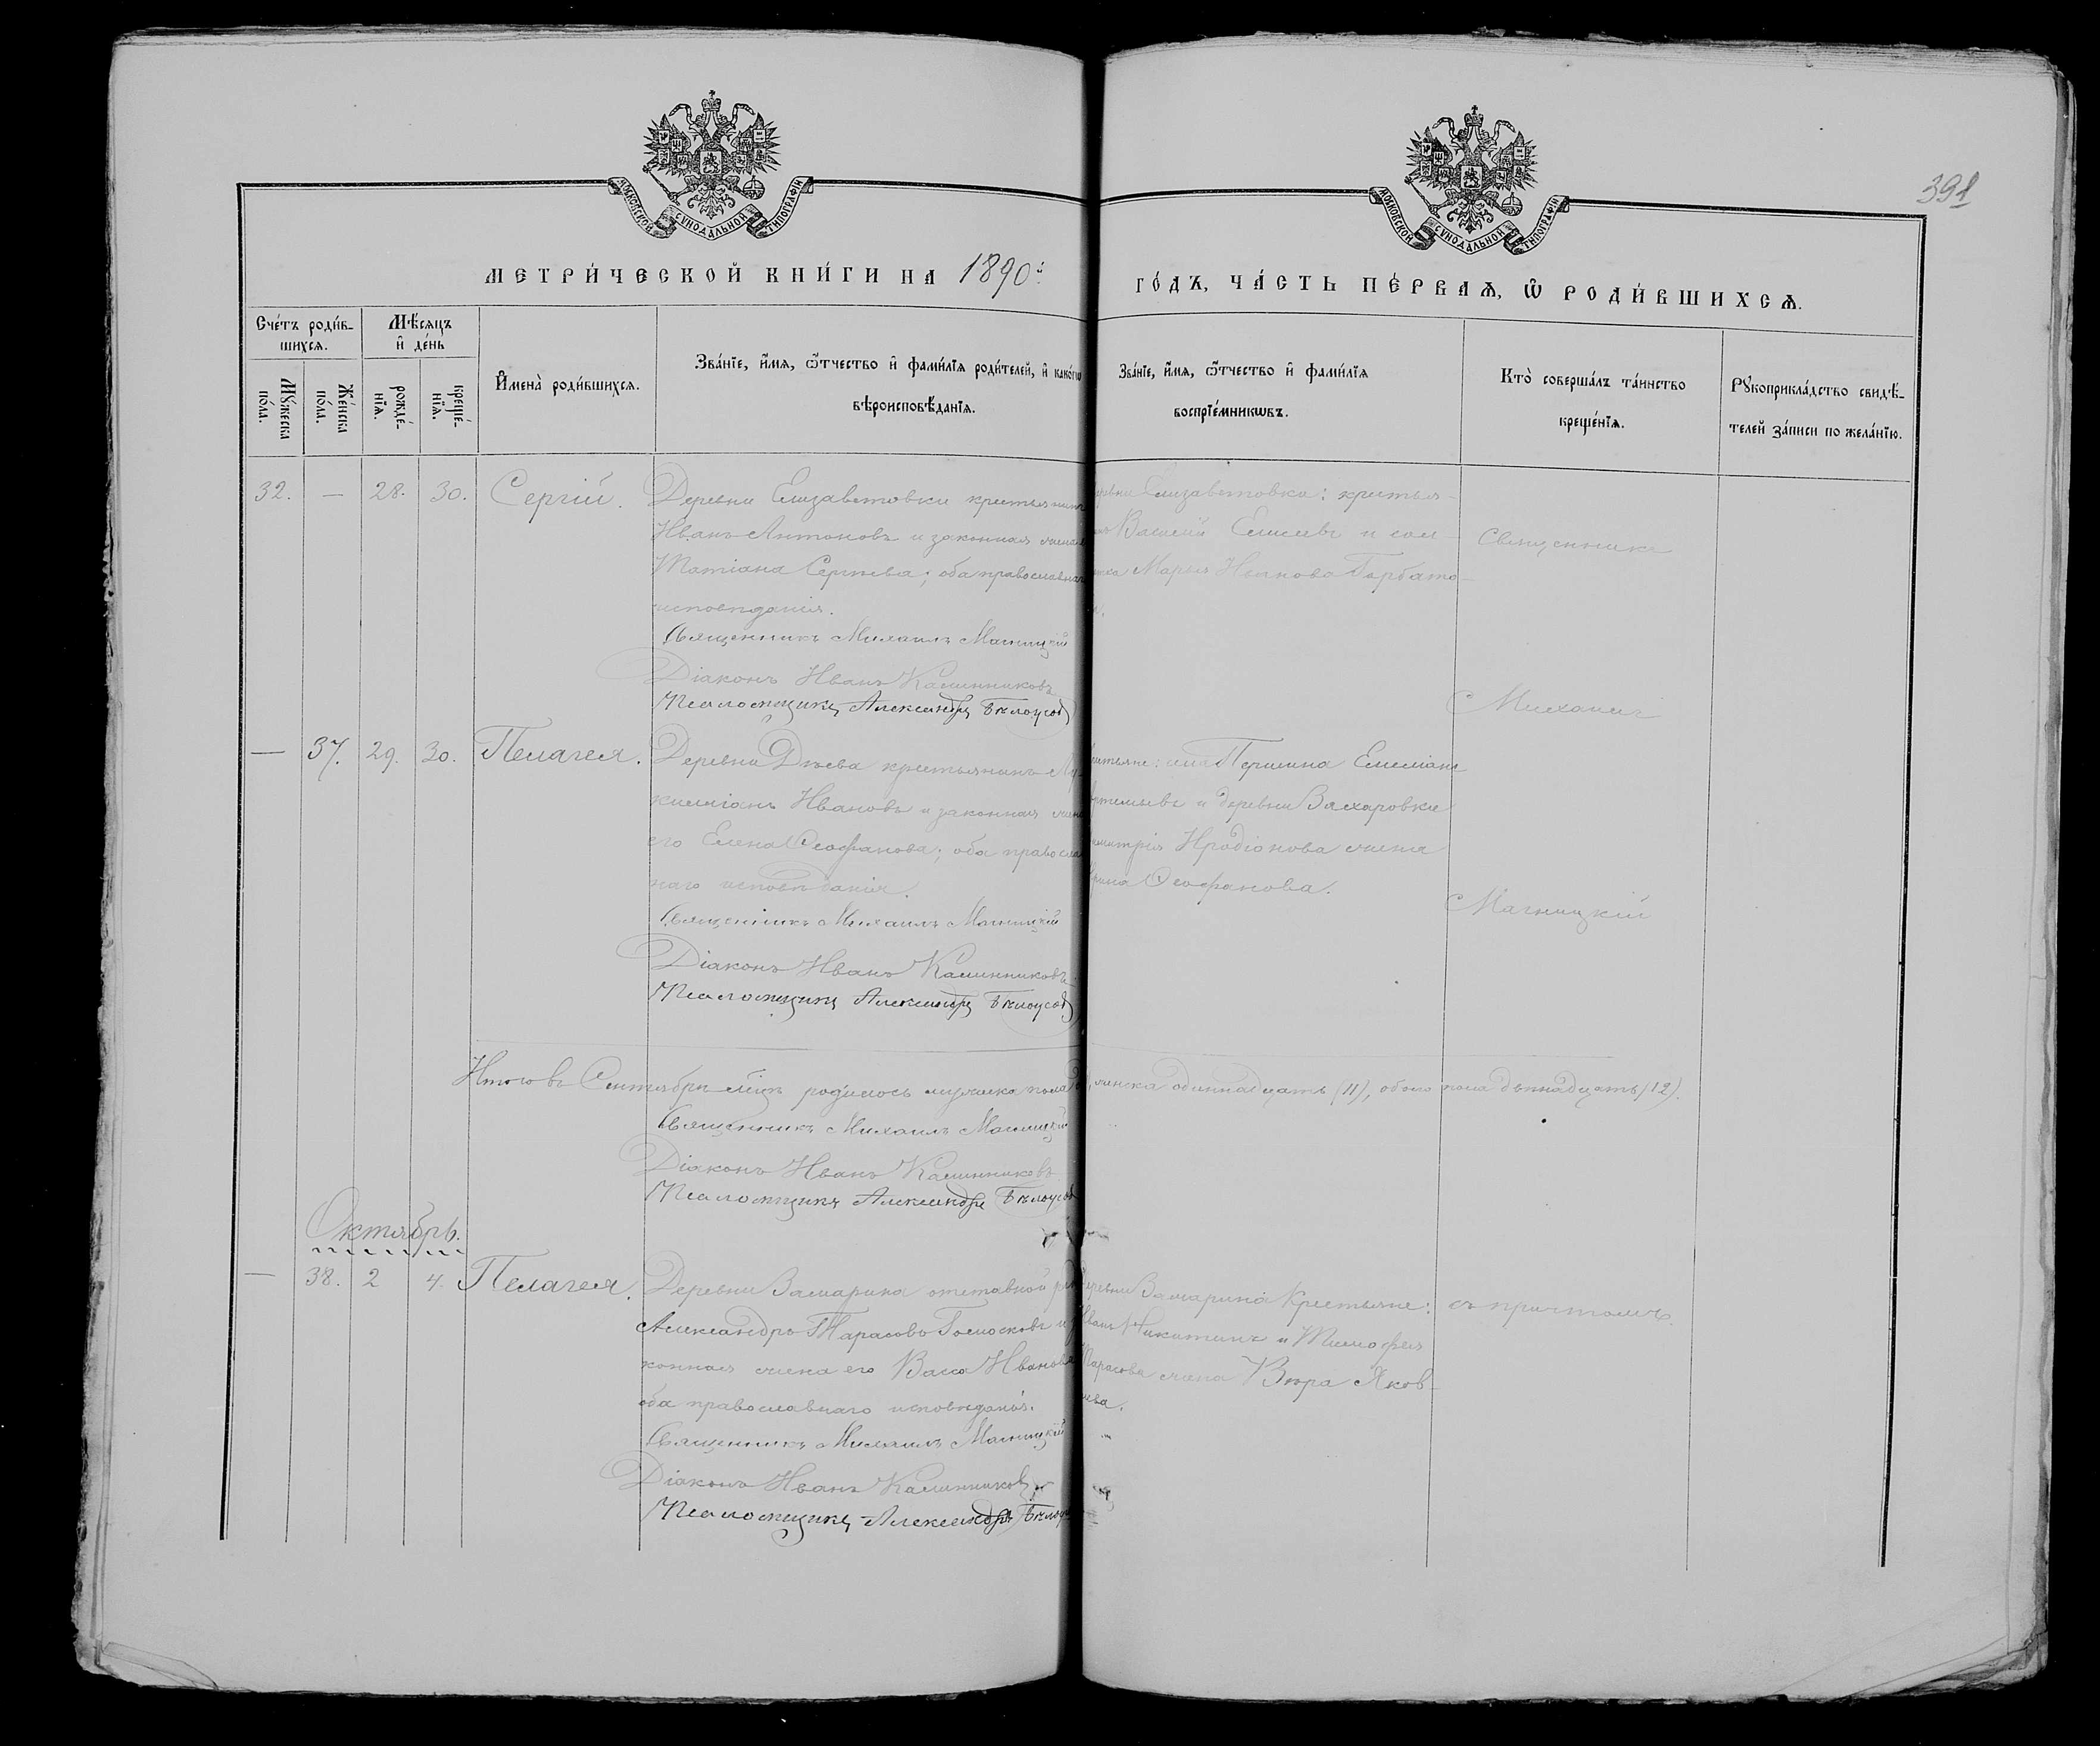 МОСКОВСКОЙ СУНОДАЛЬНОЙ ТИПОГРАФІИ
МОСКОВСКОЙ СУНОДАЛЬНОЙ ТИПОГРАФІИ
391
МЕТРИ́ЧЕСКОЙ КНИ́ГИ НА 1890й
ГО́ДЪ, ЧА́СТЬ ПЕ́РВАѦ, Ѽ РОДИ́ВШИХСѦ.
Сче́тъ роди́вшихсѧ.
Мѣ́сѧцъ и҆ де́нь
Мꙋ́жеска по́ла.
Же́нска по́ла.
рожде́нїѧ.
креще́нїѧ.
И҆мена̀ роди́вшихсѧ.
Зва́нїе, и҆́мѧ, ѻ҆́тчество и҆ фами́лїѧ роди́телей, и҆ како́гѡ
вѣроисповѣ́данїѧ.
Зва́нїе, и҆́мѧ, ѻ҆́тчество и҆ фами́лїѧ
воспрїе́мникѡвъ.
Кто̀ соверша́лъ та́инство
креще́нїѧ.
Рꙋкоприкла́дство свидѣ́-
телей за́писи по жела́нїю.
32. — 28. 30. Сергій.
Деревни Елизаветовки крестьянинъ
Иванъ Антоновъ и законная жена
Татіана Сергѣева; оба православнаго
исповѣданія.
Священникъ Михаилъ Магницкій
Діаконъ Иванъ Калинниковъ
Псаломщикъ Александръ Бѣлоусов
Елизаветовка: крестья-
Василій Елисеевъ и сол-
Марья Иванова Горбато-
Священникъ
Михаилъ
— 37. 29. 30. Пелагея.
Деревни Дѣева крестьянинъ Лу-
килліанъ Ивановъ и законная жена
его Елена Ѳеофанова; оба православ-
наго исповѣданія.
Священникъ Михаилъ Магницкій
Діаконъ Иванъ Калинниковъ
Псаломщикъ Александръ Бѣлоусов
села Першина Емеліанъ
и деревни Захаровки
Иродіонова жена
Ѳеофанова.
Магницкій
Итого въ Сентябрѣ мѣсяцѣ родилось мужеска пола
женска одиннадцать (11), обоего пола двѣнадцать (12).
Священникъ Михаилъ Магницкій
Діаконъ Иванъ Калинниковъ
Псаломщикъ Александръ Бѣлоусов
Октябрь.
— 38. 2 4. Пелагея.
Деревни Замарина отставной
Александръ Тарасовъ Голосковъ и
конная жена его Васса Иванова
оба православнаго исповѣданія.
Священникъ Михаилъ Магницкій
Діаконъ Иванъ Калинников
Псаломщикъ Александръ
Замарина Крестьяне:
Никитинъ и Тимофея
Тарасова жена Вѣра Яков-
лева.
съ причтомъ.